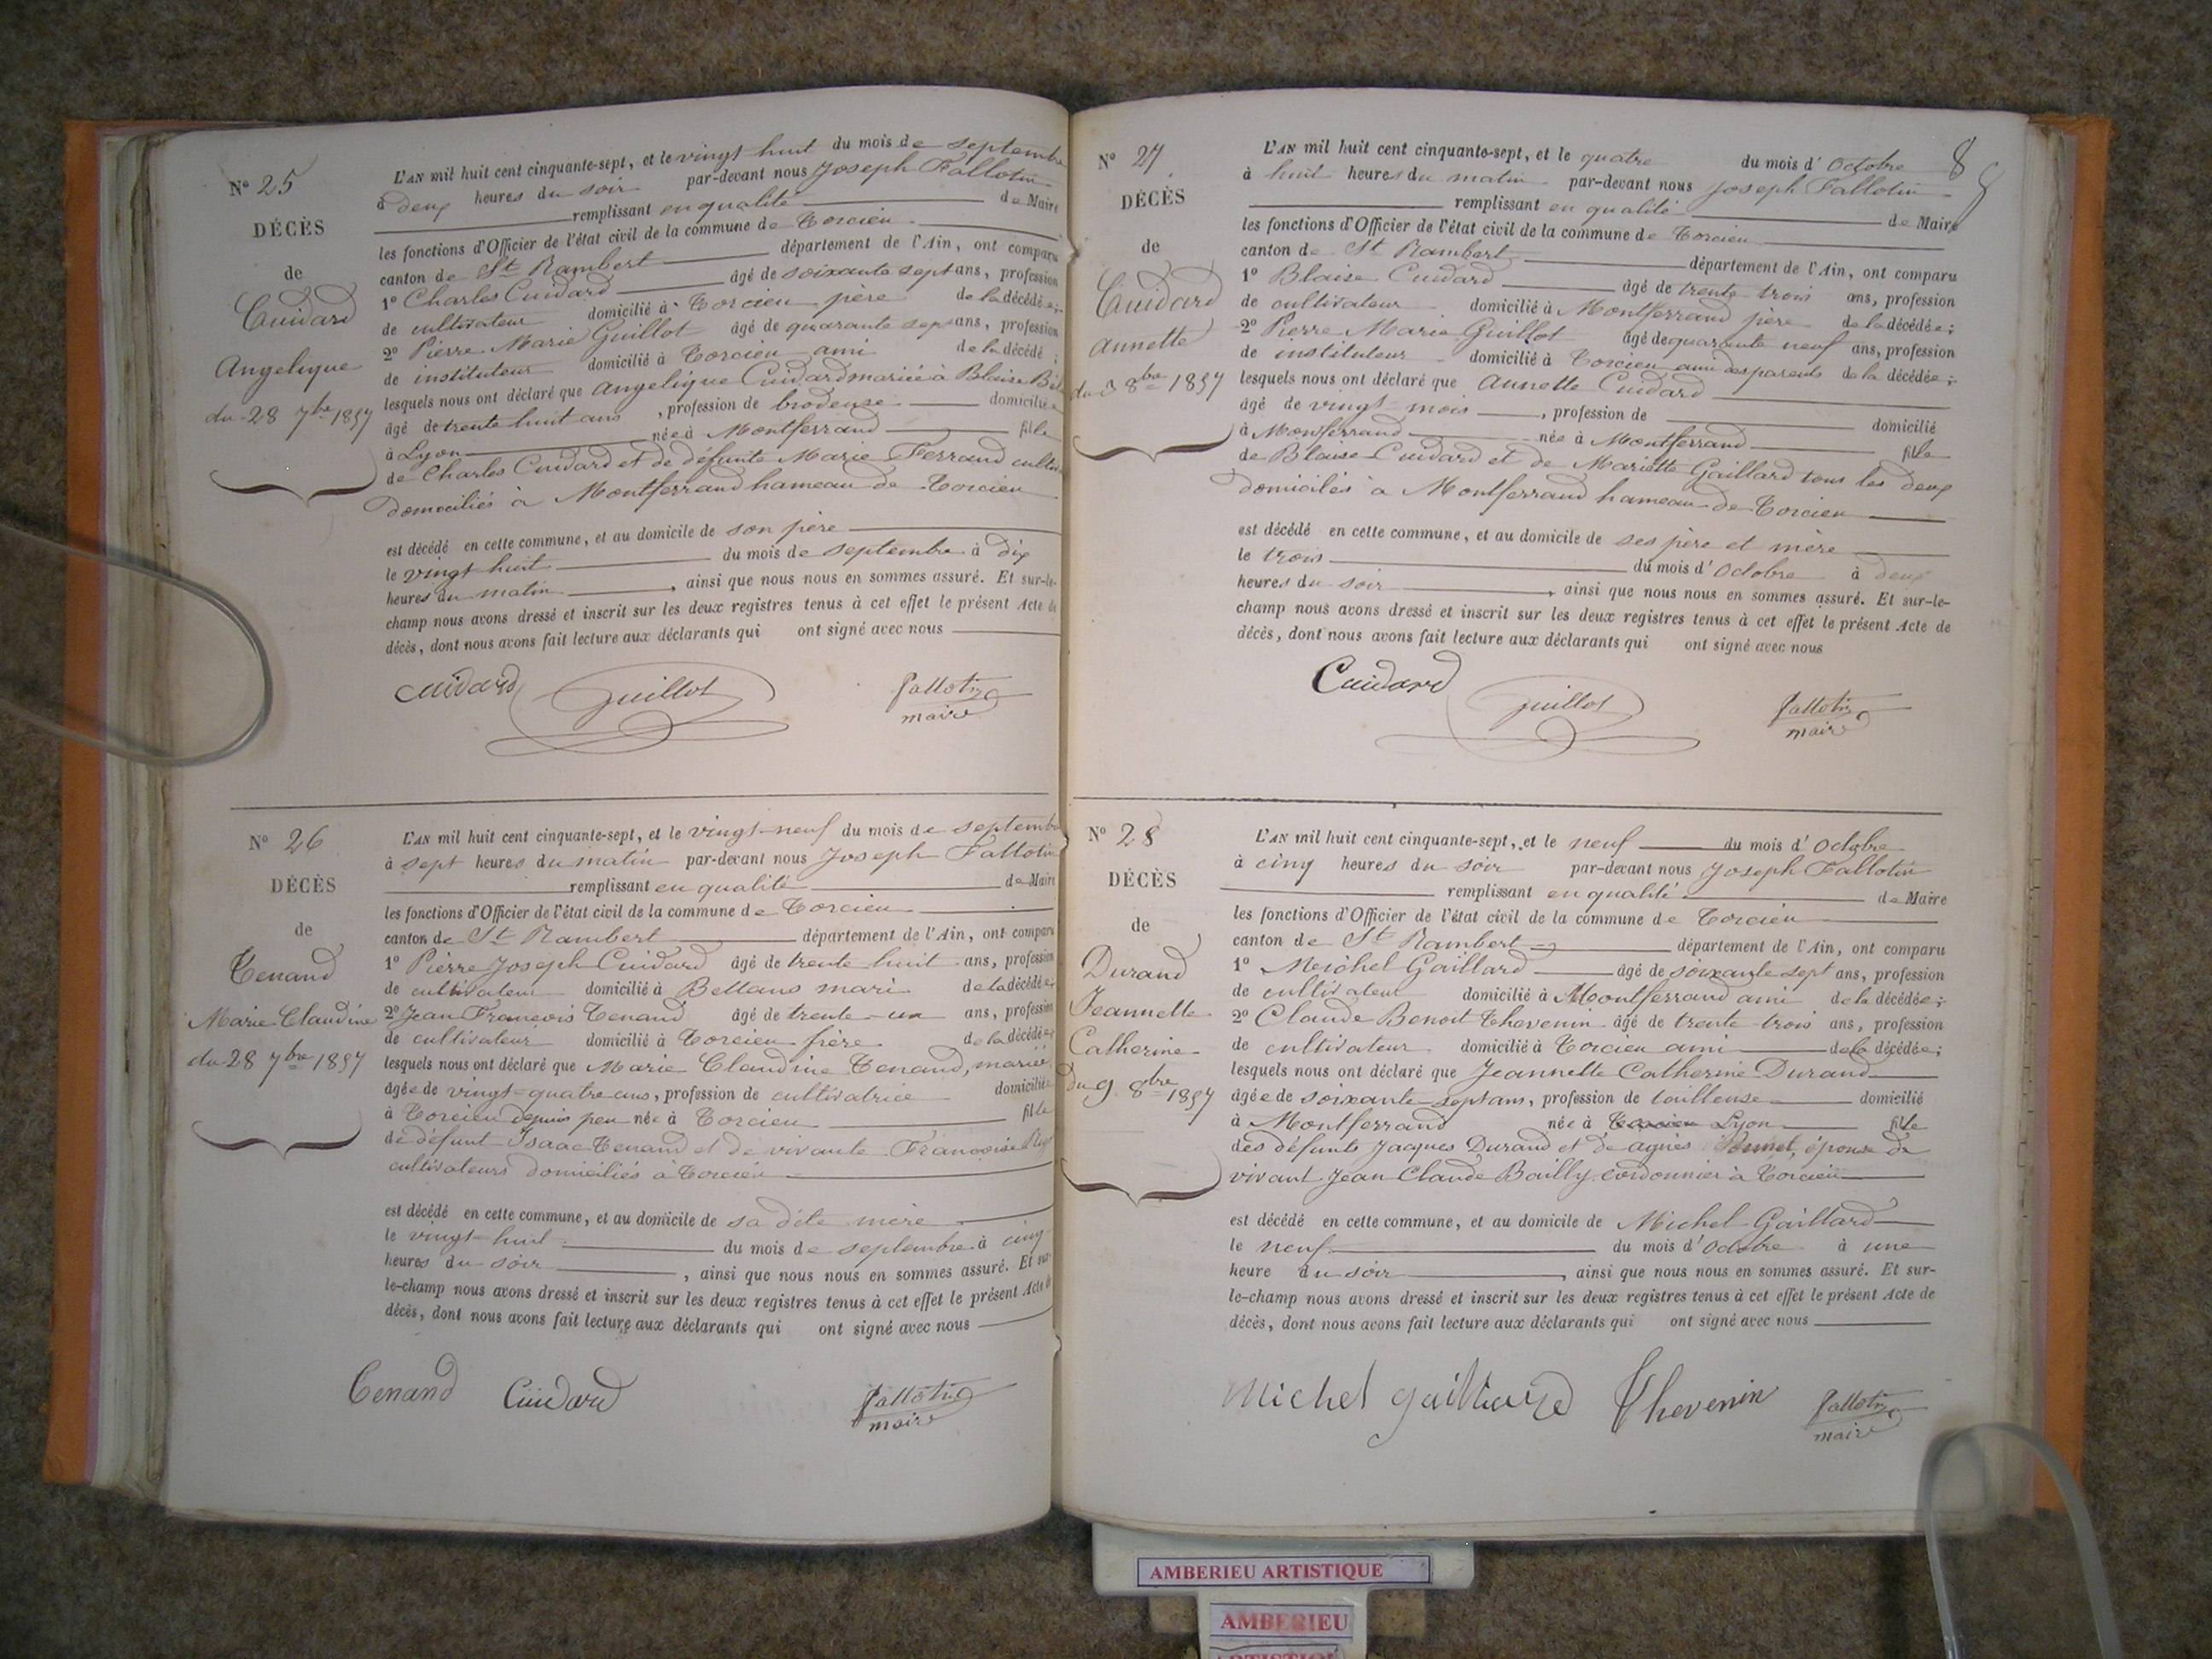 N° 25
DÉCÈS
de
Cuidard
Angelique
du 28 7bre 1857
L'AN mil huit cent cinquante-sept, et le vingt huit du mois de septembre
à deux heures du soir par-devant nous Joseph Fallotin
remplissant en qualité de Maire
les fonctions d'Officier de l'état civil de la commune de Torcieu
canton de St Rambert département de l'Ain, ont comparu
1° Charles Cuidard âgé de soixante sept ans, profession
de cultivateur domicilié à Torcieu père de la décédée;
2° Pierre Marie Guillot âgé de quarante sept ans, profession
de instituteur domicilié à Torcieu ami de la décédé ;
lesquels nous ont déclaré que Angelique Cuidard mariée à Blaise
âgé de trente huit ans, profession de brodeuse domiciliée
à Lyon née à Montferrand fille
de Charles Cuidard et de défunte Marie Ferrand
domiciliés à Montferrand hameau de Torcieu
est décédé en cette commune, et au domicile de son père
le vingt huit du mois de septembre à dix
heures du matin, ainsi que nous nous en sommes assuré. Et sur-le-
champ nous avons dressé et inscrit sur les deux registres tenus à cet effet le présent Acte de
décès, dont nous avons fait lecture aux déclarants qui ont signé avec nous
Cuidard Guillot Fallotin
maire
N° 26
DÉCÈS
de
Tenand
Marie Claudine
du 28 7bre 1857
L'AN mil huit cent cinquante-sept, et le vingt-neuf du mois de septembre
à sept heures du matin par-devant nous Joseph Fallotin
remplissant en qualité de Maire
les fonctions d'Officier de l'état civil de la commune de Torcieu
canton de St Rambert département de l'Ain, ont comparu
1° Pierre Joseph Cuidard âgé de trente huit ans, profession
de cultivateur domicilié à Bettans mari de la décédée;
2° Jean François Tenand âgé de trente-un ans, profession
de cultivateur domicilié à Torcieu frère de la décédée;
lesquels nous ont déclaré que Marie Claudine Tenand, mariée
âgée de vingt-quatre ans, profession de cultivatrice domiciliée
à Torcieu depuis peu née à Torcieu fille
de défunt Isaac Tenand et de vivante Françoise
cultivateurs domiciliés à Torcieu
est décédé en cette commune, et au domicile de sa dite mère
le vingt-huit du mois de septembre à cinq
heures du soir, ainsi que nous nous en sommes assuré. Et sur-
le-champ nous avons dressé et inscrit sur les deux registres tenus à cet effet le présent Acte de
décès, dont nous avons fait lecture aux déclarants qui ont signé avec nous
Tenand Cuidard Fallotin
maire
88
N° 27
DÉCÈS
de
Cuidard
Annette
du 3 8bre 1857
L'AN mil huit cent cinquante-sept, et le quatre du mois d'Octobre
à huit heures du matin par-devant nous Joseph Fallotin
remplissant en qualité de Maire
les fonctions d'Officier de l'état civil de la commune de Torcieu
canton de St Rambert département de l'Ain, ont comparu
1° Blaise Cuidard âgé de trente trois ans, profession
de cultivateur domicilié à Montferrand père de la décédée;
2° Pierre Marie Guillot âgé de quarante neuf ans, profession
de instituteur domicilié à Torcieu ami des parents de la décédée;
lesquels nous ont déclaré que Annette Cuidard
âgé de vingt mois, profession de domicilié
à Montferrand née à Montferrand fille
de Blaise Cuidard et de Mariette Gaillard tous les deux
domiciliés à Montferrand hameau de Torcieu
est décédé en cette commune, et au domicile de ses père et mère
le trois du mois d'Octobre à deux
heures du soir, ainsi que nous nous en sommes assuré. Et sur-le-
champ nous avons dressé et inscrit sur les deux registres tenus à cet effet le présent Acte de
décès, dont nous avons fait lecture aux déclarants qui ont signé avec nous
Cuidard Guillot Fallotin
maire
N° 28
DÉCÈS
de
Durand
Jeannette
Catherine
du 9 8bre 1857
L'AN mil huit cent cinquante-sept, et le neuf du mois d'Octobre
à cinq heures du soir par-devant nous Joseph Fallotin
remplissant en qualité de Maire
les fonctions d'Officier de l'état civil de la commune de Torcieu
canton de St Rambert département de l'Ain, ont comparu
1° Meichel Gaillard âgé de soixante sept ans, profession
de cultivateur domicilié à Montferrand ami de la décédée;
2° Claude Benoit Thevenin âgé de trente-trois ans, profession
de cultivateur domicilié à Torcieu ami de la décédée;
lesquels nous ont déclaré que Jeannette Catherine Durand
âgée de soixante-sept ans, profession de tailleuse domicilié
à Montferrand née à Torcieu Lyon fille
des défunts Jacques Durand et de agnès épouse de
vivant Jean Claude Bailly cordonnier à Torcieu
est décédé en cette commune, et au domicile de Michel Gaillard
le neuf du mois d'Octobre à une
heure du soir, ainsi que nous nous en sommes assuré. Et sur-
le-champ nous avons dressé et inscrit sur les deux registres tenus à cet effet le présent Acte de
décès, dont nous avons fait lecture aux déclarants qui ont signé avec nous
Michel gaillard Thevenin Fallotin
maire
AMBERIEU ARTISTIQUE
AMBERIEU
ARTISTIQUE